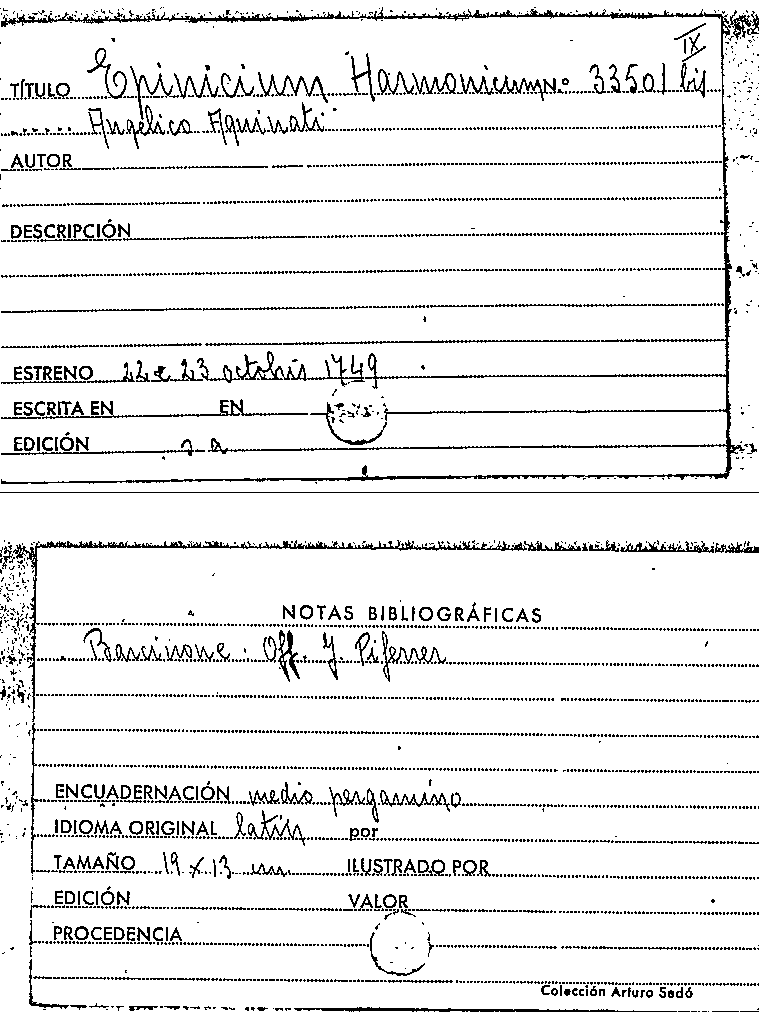 IX
TÍTULO Epinicium Harmonicum N.º 33501 bis
...... Angelico Aquinati
AUTOR
DESCRIPCIÓN
ESTRENO 22 e 23 octobris 1749
ESCRITA EN EN
EDICIÓN s a
NOTAS BIBLIOGRÁFICAS
Barcinone. Off. J. Piferrer
ENCUADERNACIÓN medio pergamino
IDIOMA ORIGINAL latín por
TAMAÑO 19 x 13 cm. ILUSTRADO POR
EDICIÓN VALOR
PROCEDENCIA
Colección Arturo Sedó